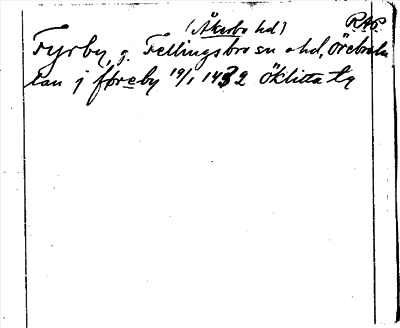 (Åkerbo hd) RAP.
Fyrby, g. Fellingsbro sn o hd, Örebro län
tan j føreby 19/1 1432 Öklitta